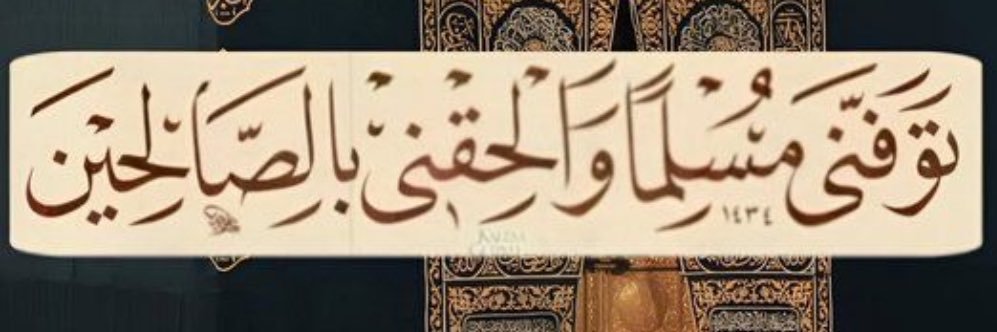 تَوَفَّنِى مُسْلِمًا وَاَلْحِقْنِىْ بِالصَّالِحِيْنَ
١٤٣٤